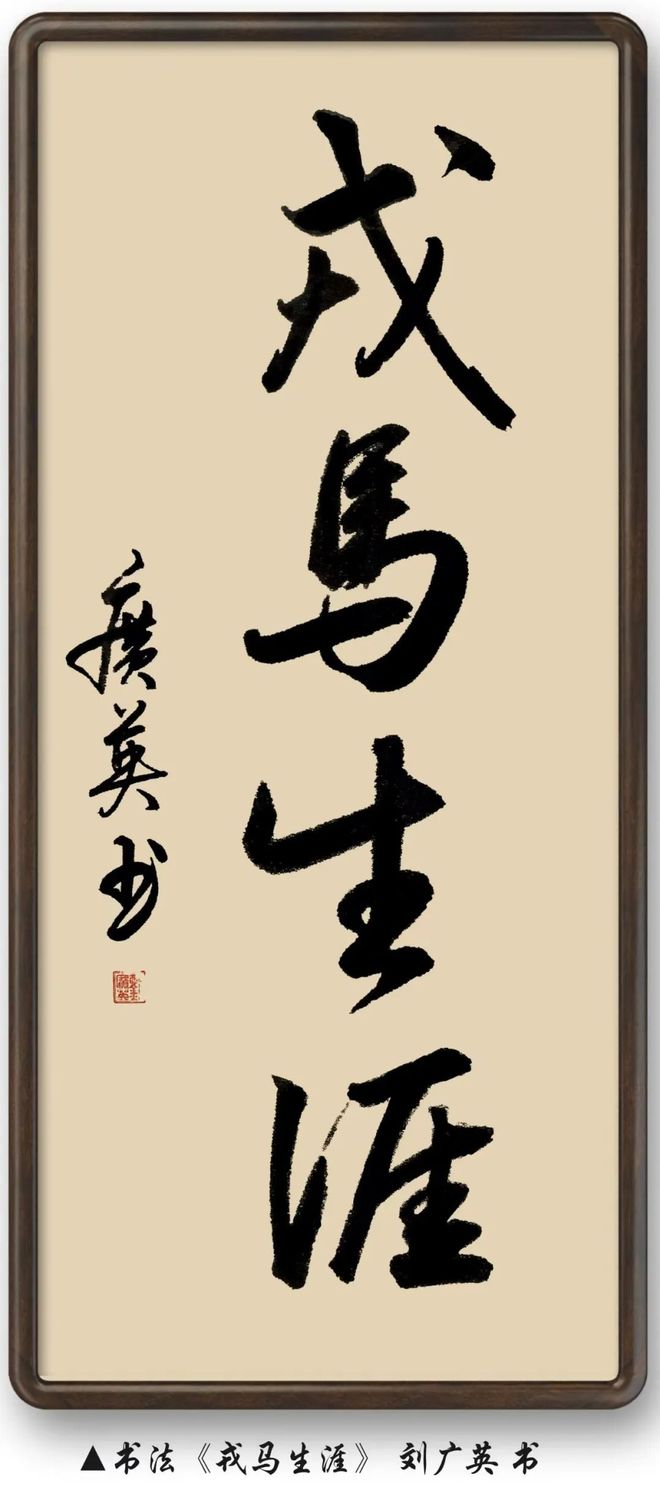 戎馬生涯
廣英书
▲书法《戎马生涯》 刘广英 书